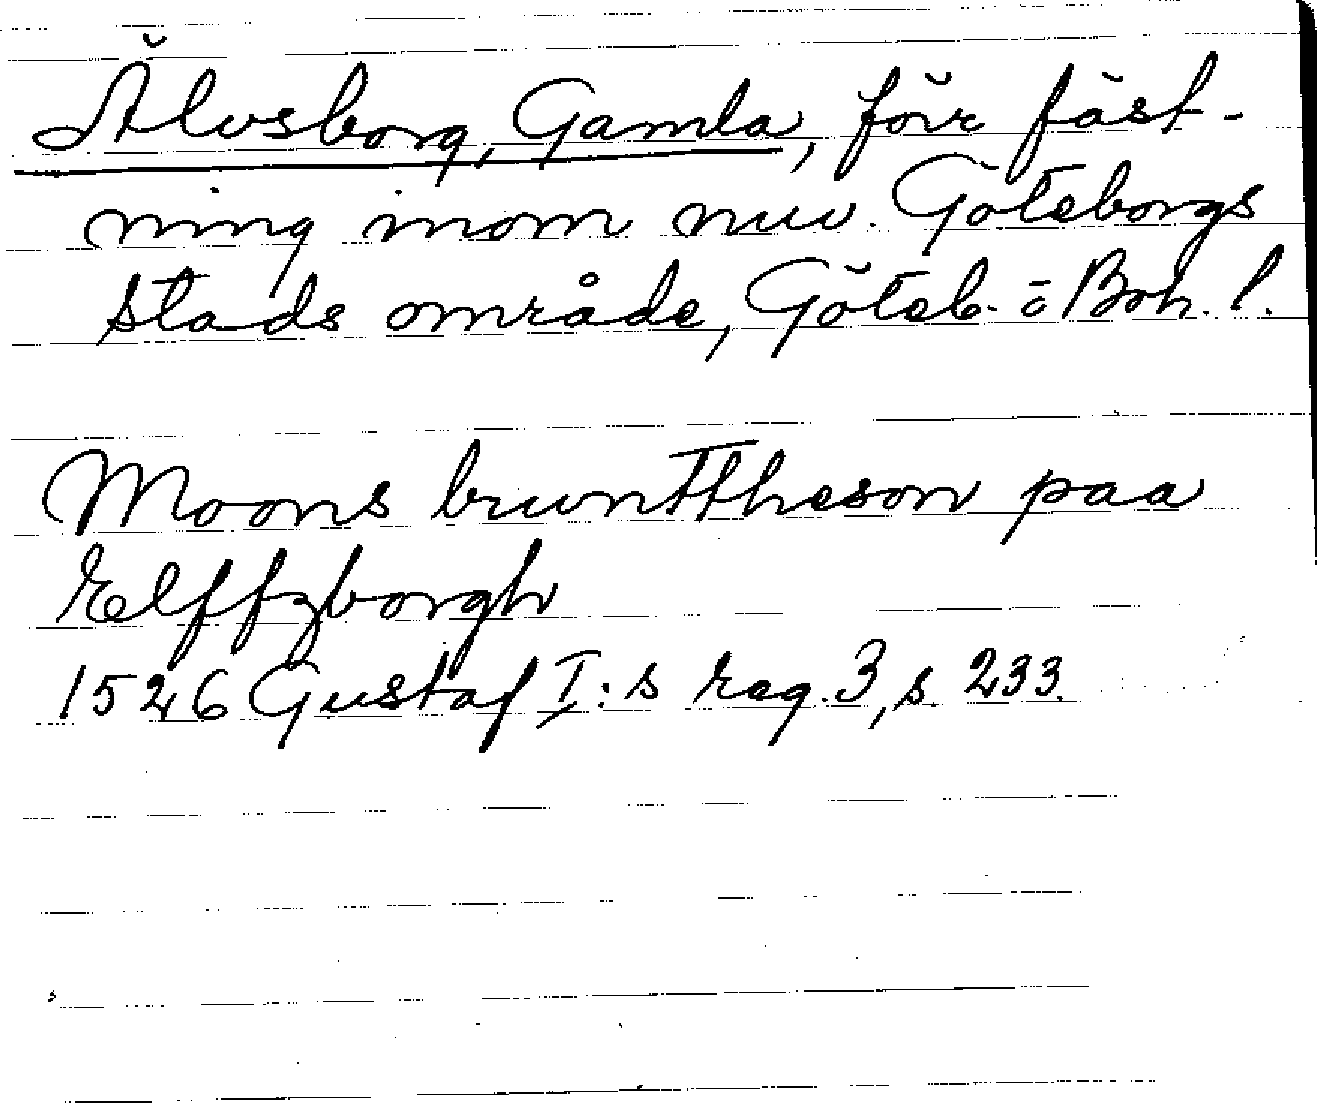 Älvsborg, Gamla, förr fäst-
ning inom nuv. Göteborgs
stads område, Göteb. o Boh. l.
Moons brunttheson paa
Elffzborgh
1526 Gustaf I:s reg. 3, s. 233.